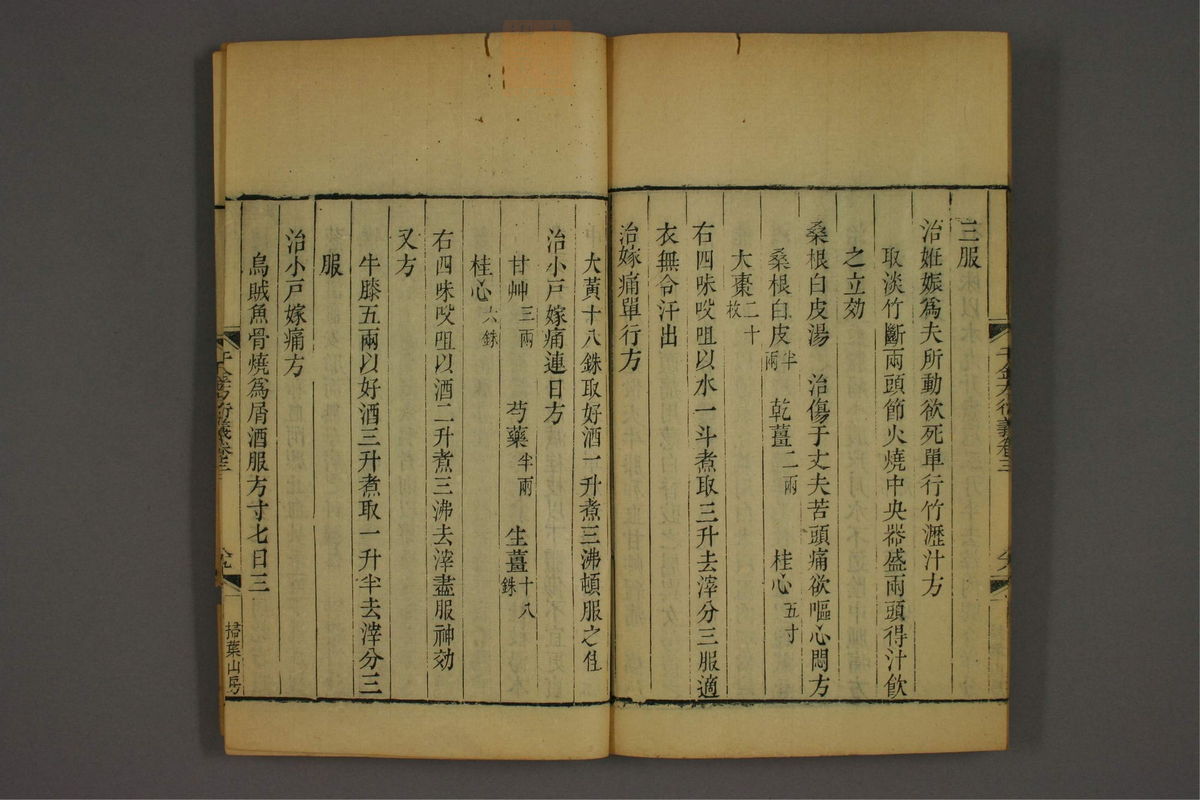 三服
治姙娠爲夫所動欲死單行竹瀝汁方
取淡竹斷兩頭節火燒中央器盛兩頭得汁飲
之立効
桑根白皮湯 治傷于丈夫苦頭痛欲嘔心悶方
桑根白皮半兩 乾薑二兩 桂心五寸
大棗二十枚
右四味㕮咀以水一斗煮取三升去滓分三服適
衣無令汗出
治嫁痛單行方
大黃十八銖取好酒一升煮三沸頓服之佳
治小戸嫁痛連日方
甘艸三兩 芍藥半兩 生薑十八銖
桂心六銖
右四味㕮咀以酒二升煮三沸去滓盡服神効
又方
牛膝五兩以好酒三升煮取一升半去滓分三
服
治小戸嫁痛方
烏賊魚骨燒爲屑酒服方寸七日三
千金方衍義卷三
掃葉山房